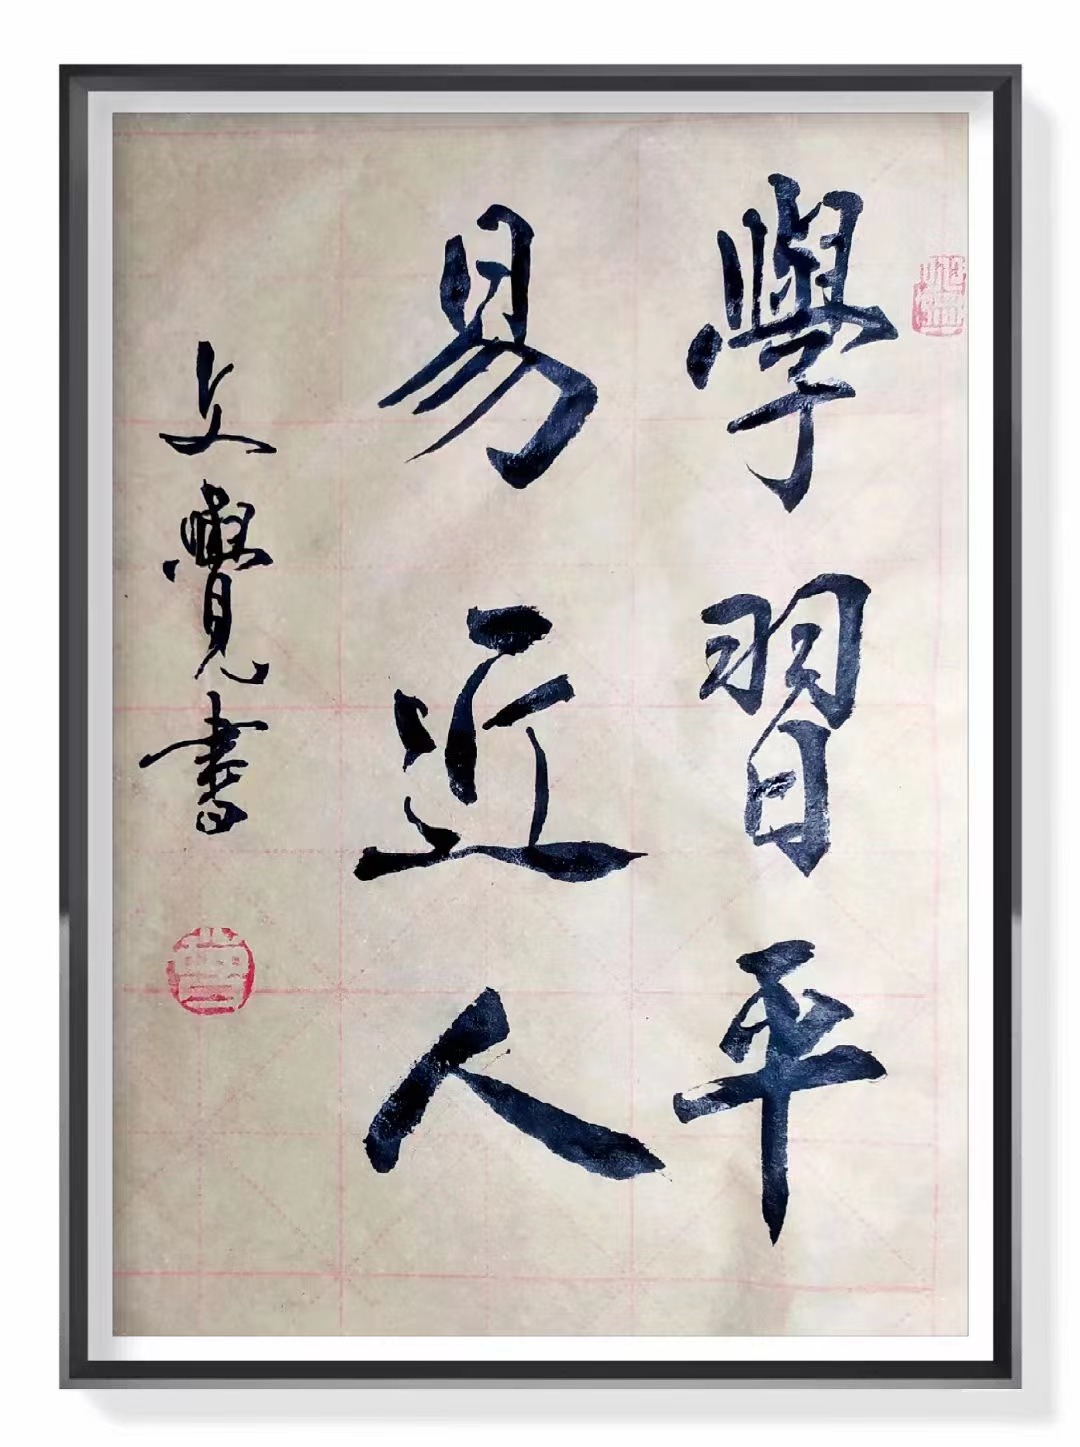 學習平
易近人
文覺書